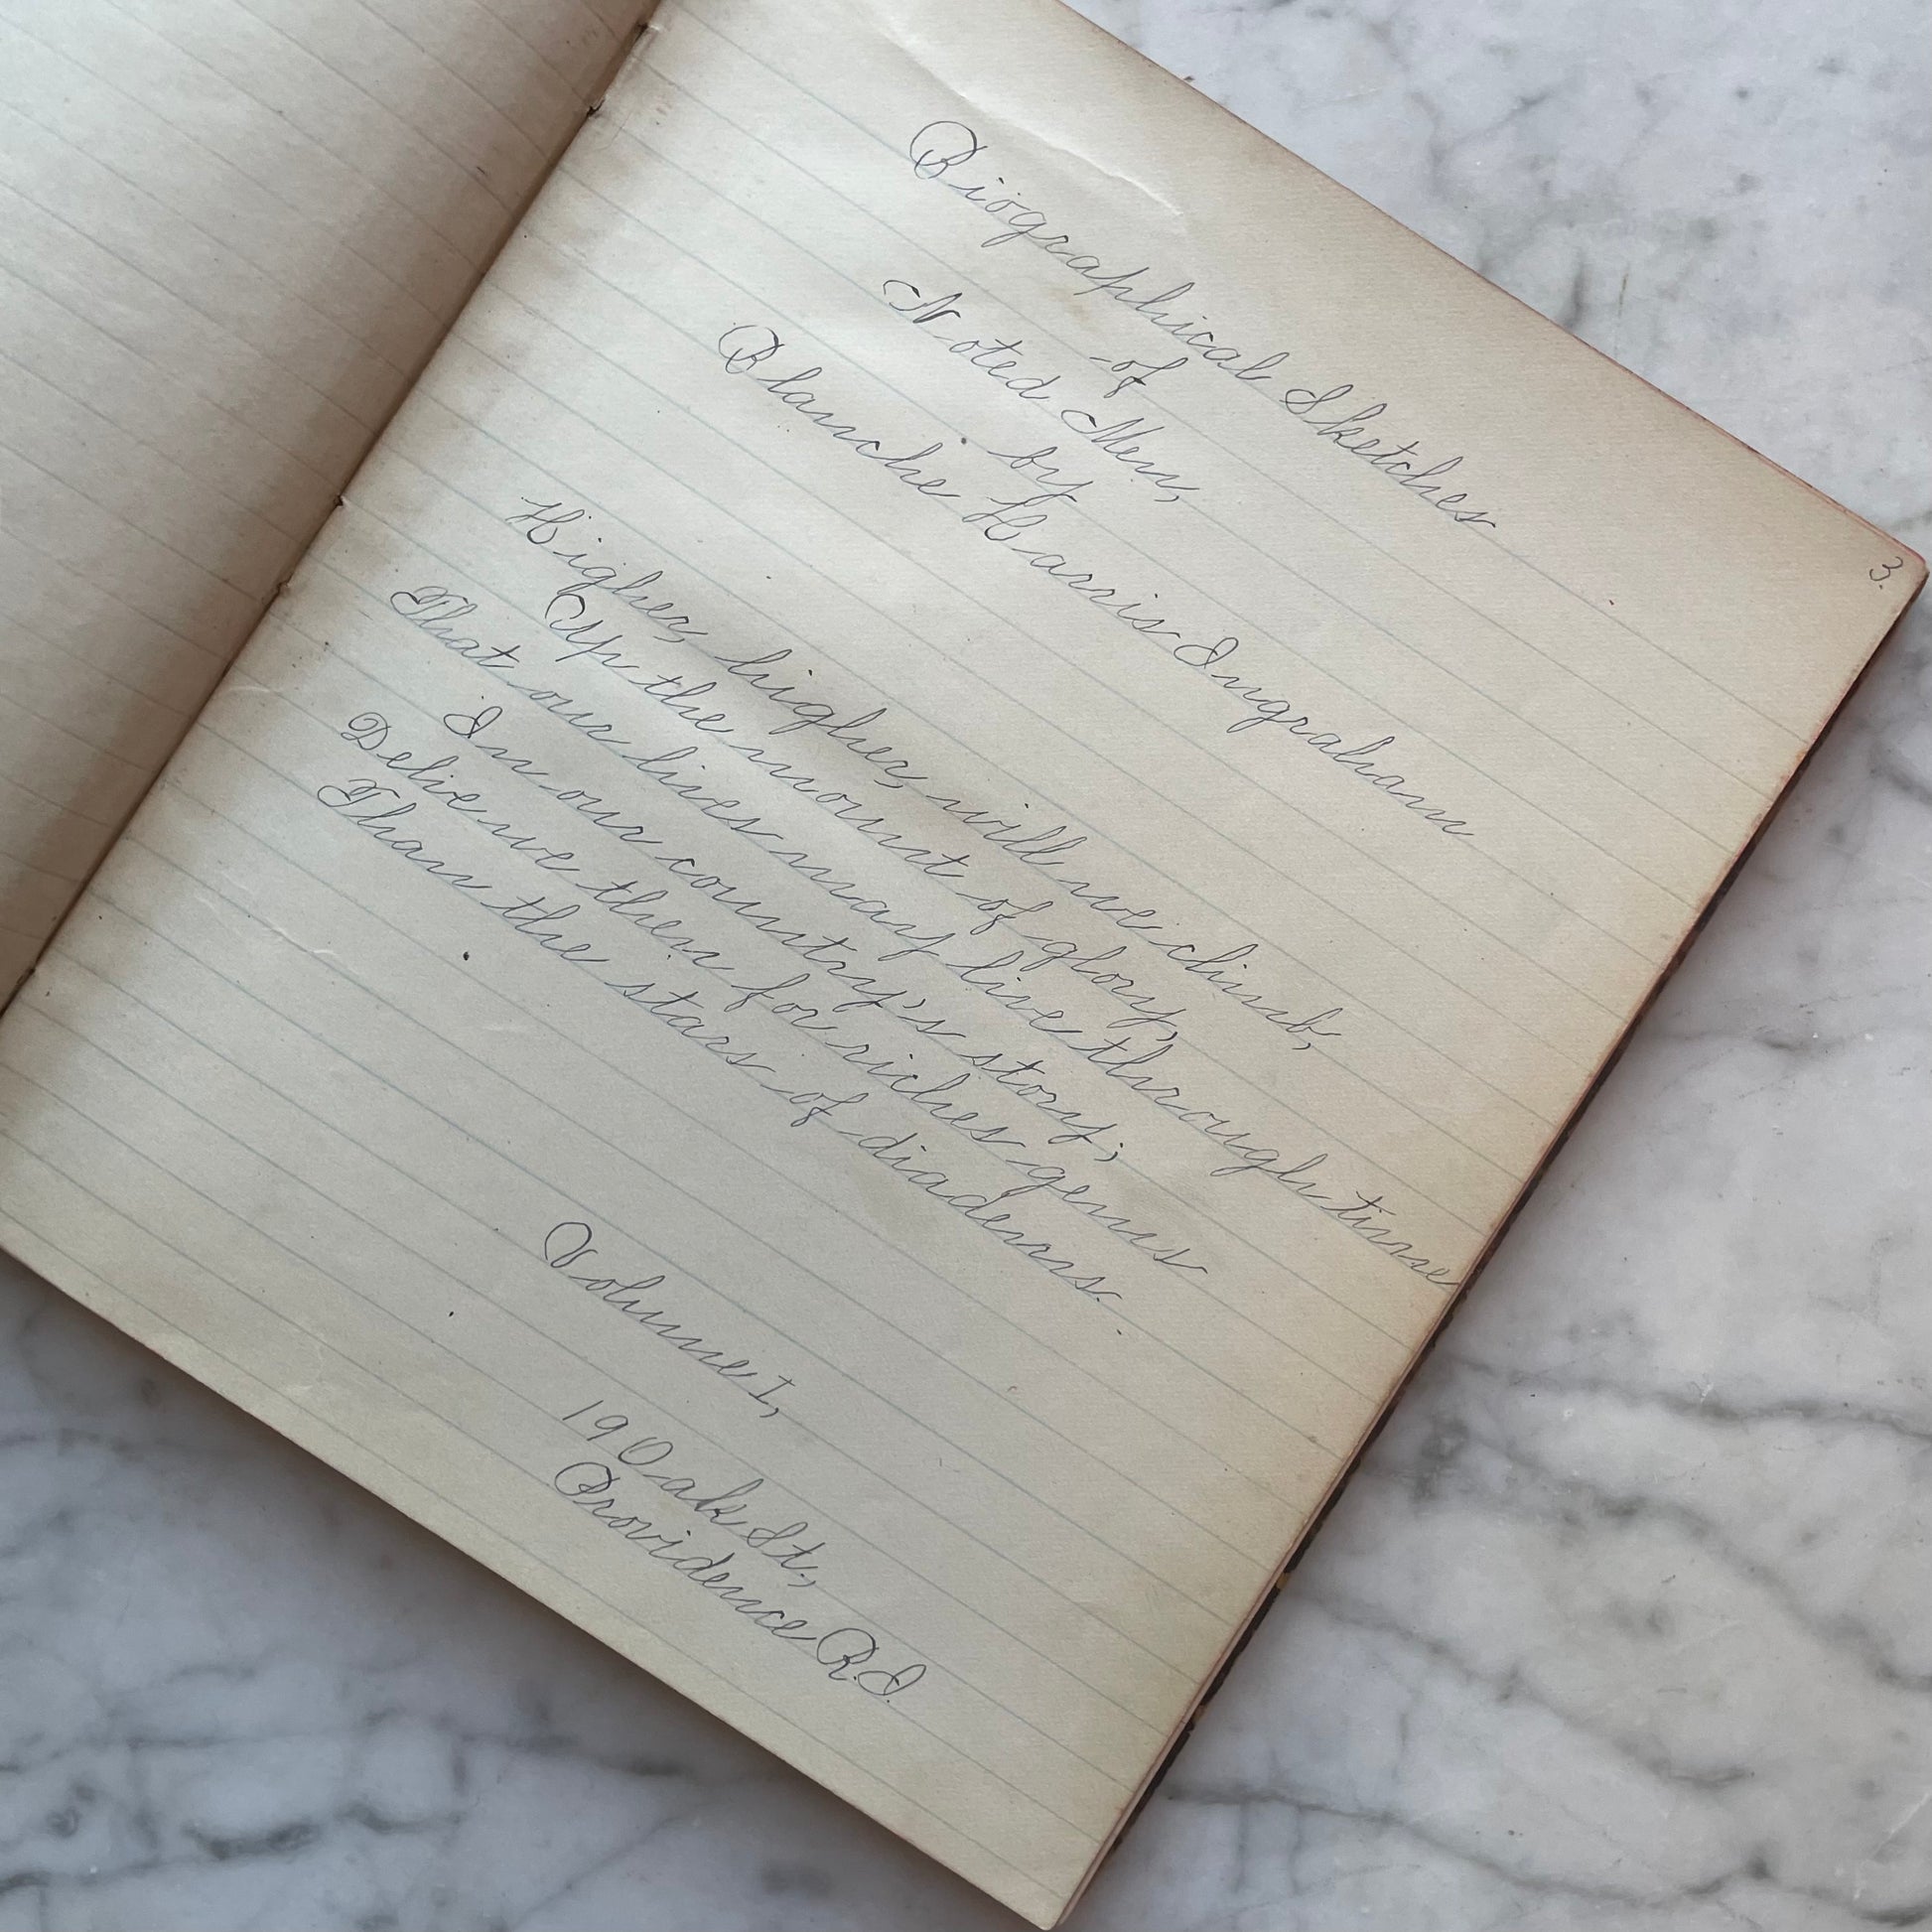 3.
Biographical Sketches
of
Noted Men,
by
Blanche Harris Ingraham
Higher, higher, will we climb,
Up the mount of glory,
That our lives may live through time
In our country's story;
Delve we then for riches gems
Than the stars of diadems.
Volume I,
19 Oak St,
Providence R.I.